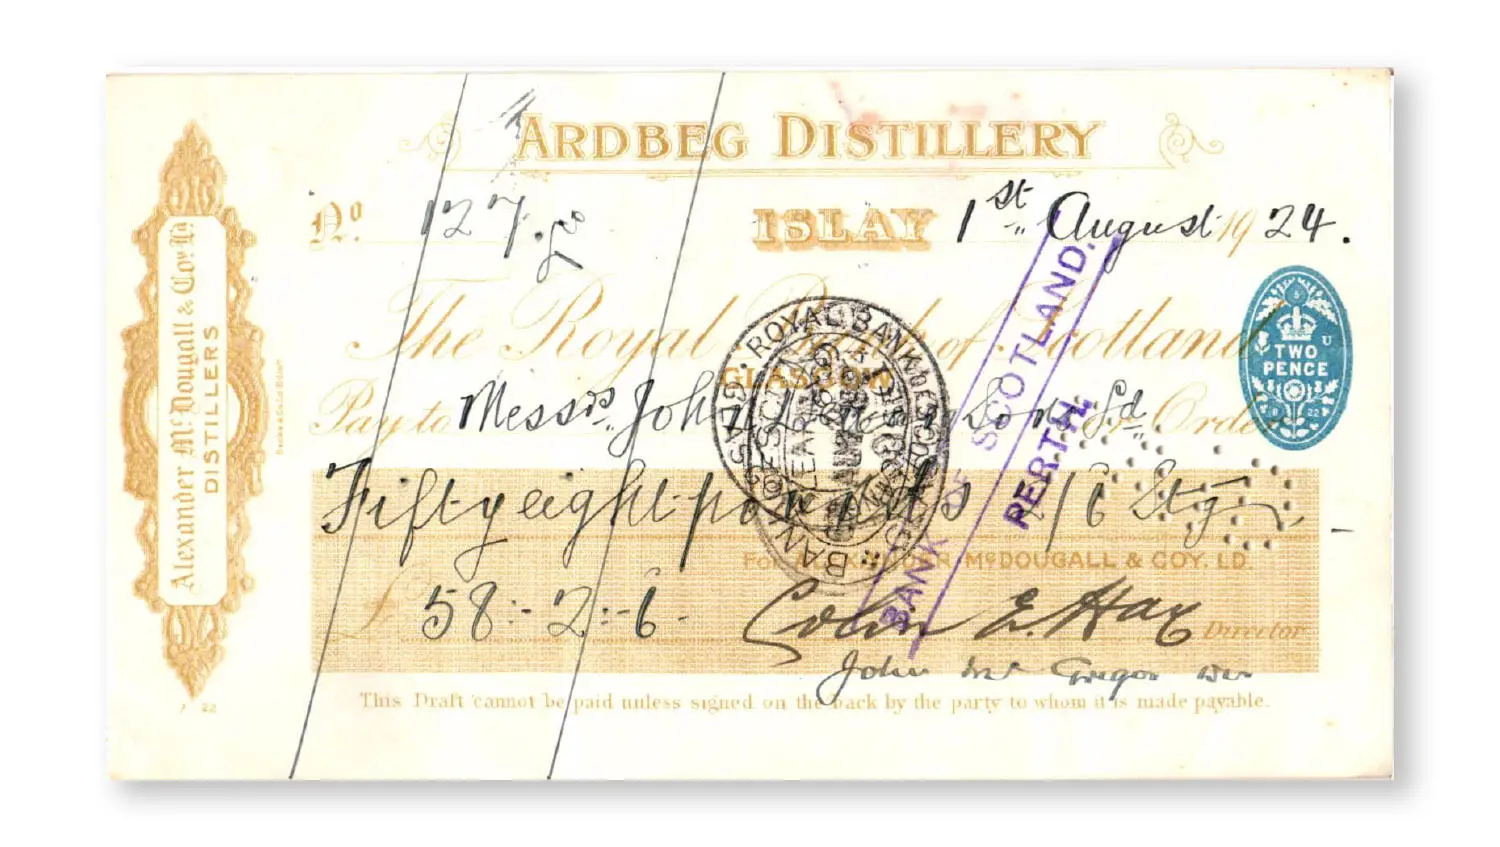 ARDBEG DISTILLERY
Nº. 127
ISLAY 1st August 1924.
Alexander McDougall & Coy. Ld.
DISTILLERS
The Royal Bank of Scotland
GLASGOW
TWO PENCE
U
8 22
Pay to Messrs. John & Son Ld. Order
Fifty eight pounds 2/6 Stg.
For Alexander McDOUGALL & COY. LD.
£ 58:-2:-6-
Colin E. Hay Director
John Mc Gregor
This Draft cannot be paid unless signed on the back by the party to whom it is made payable.
22
ROYAL BANK OF SCOTLAND
GLASGOW
BANK OF SCOTLAND.
PERTH.